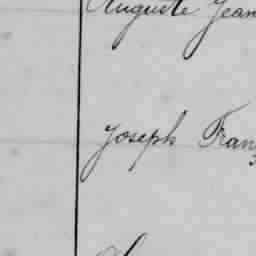 Auguste Jean
Joseph Fran